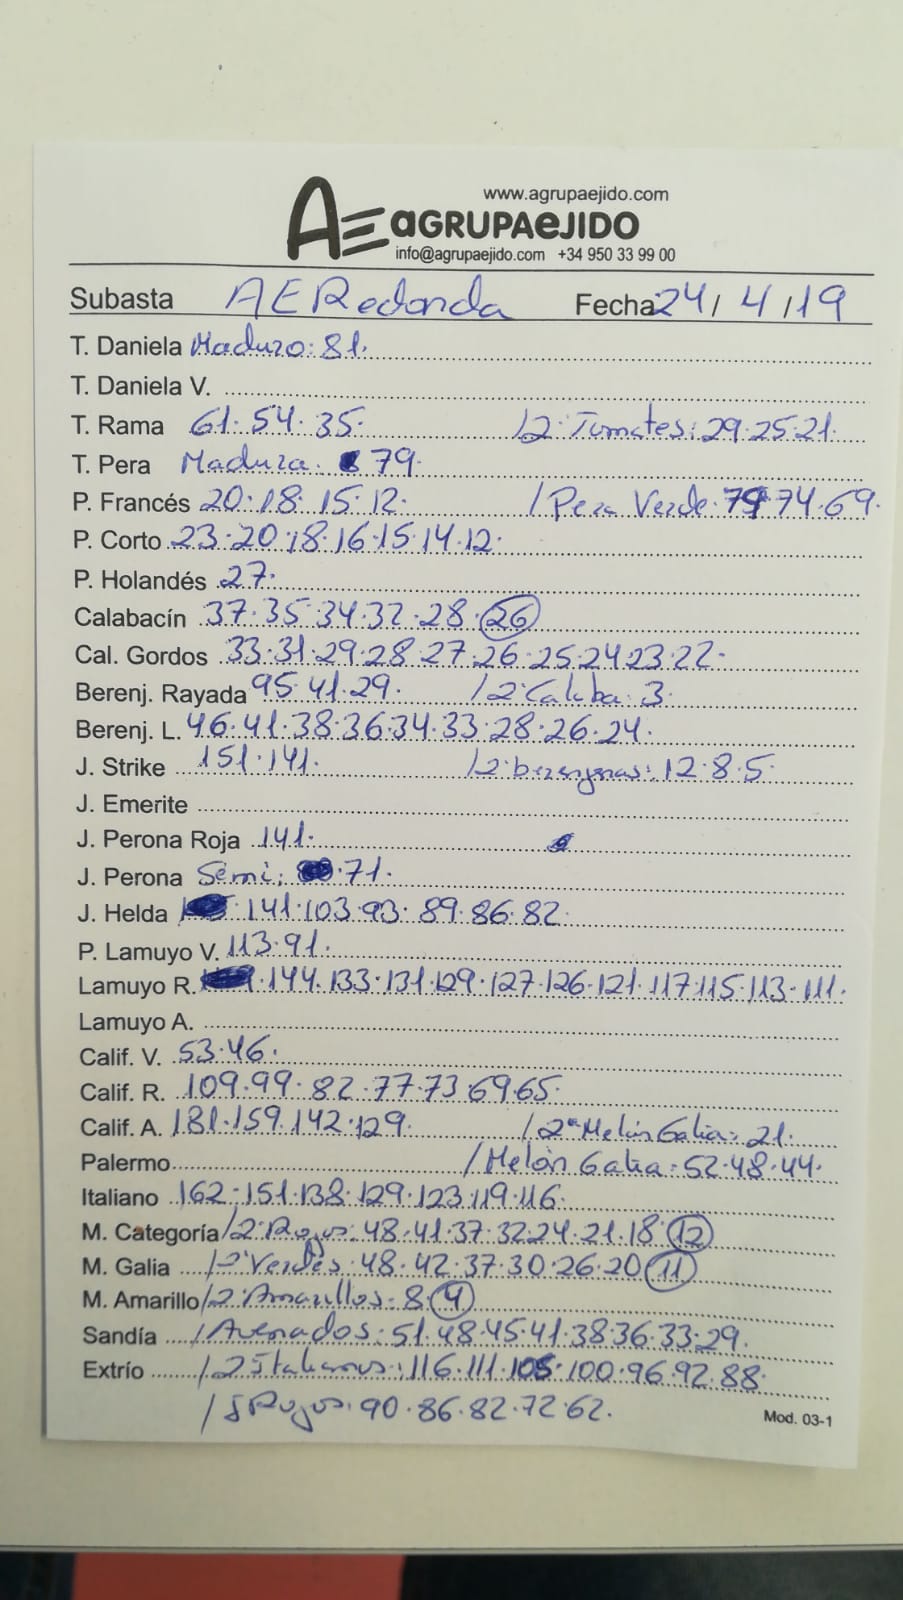 www.agrupaejido.com
AE aGRUPAeJIDO
info@agrupaejido.com +34 950 33 99 00
Subasta AERedonda Fecha 24/4/19
T. Daniela Maduro: 81.
T. Daniela V.
T. Rama 61.54.35. /2ª Tomates: 29.25.21.
T. Pera Madura. 79.
P. Francés 20.18.15.12. /Pera Verde. 79 74.69.
P. Corto 23.20.18.16.15.14.12.
P. Holandés 27.
Calabacín 37.35.34.32.28.26
Cal. Gordos 33.31.29.28.27.26.25.24 23.22.
Berenj. Rayada 95.41.29. /2ª Calaba. 3.
Berenj. L. 46.41.38.36.34.33.28.26.24.
J. Strike 151.141. /2ª berenjenas: 12.8.5.
J. Emerite
J. Perona Roja 141.
J. Perona Semi: 71.
J. Helda 141.103.93.89.86.82.
P. Lamuyo V. 113.91.
Lamuyo R. 144.133.131.129.127.126.121.117.115.113.111.
Lamuyo A.
Calif. V. 53.46.
Calif. R. 109.99.82.77.73 69.65.
Calif. A. 181.159.142.129. /2ª Melón Galia: 21.
Palermo /Melón Galia: 52.48.44.
Italiano 162.151.138.129.123.119.116.
M. Categoría /2ª Rojos: 48.41.37.32.24.21.18.12
M. Galia /2ª Verdes: 48.42.37.30.26.20 11
M. Amarillo /2ª Amarillos: 8.4
Sandía /Asenados: 51.48.45.41.38.36.33.29.
Extrío /2 Italianos: 116.111.105.100.96.92.88.
/S Rojos: 90.86.82.72.62.
Mod. 03-1